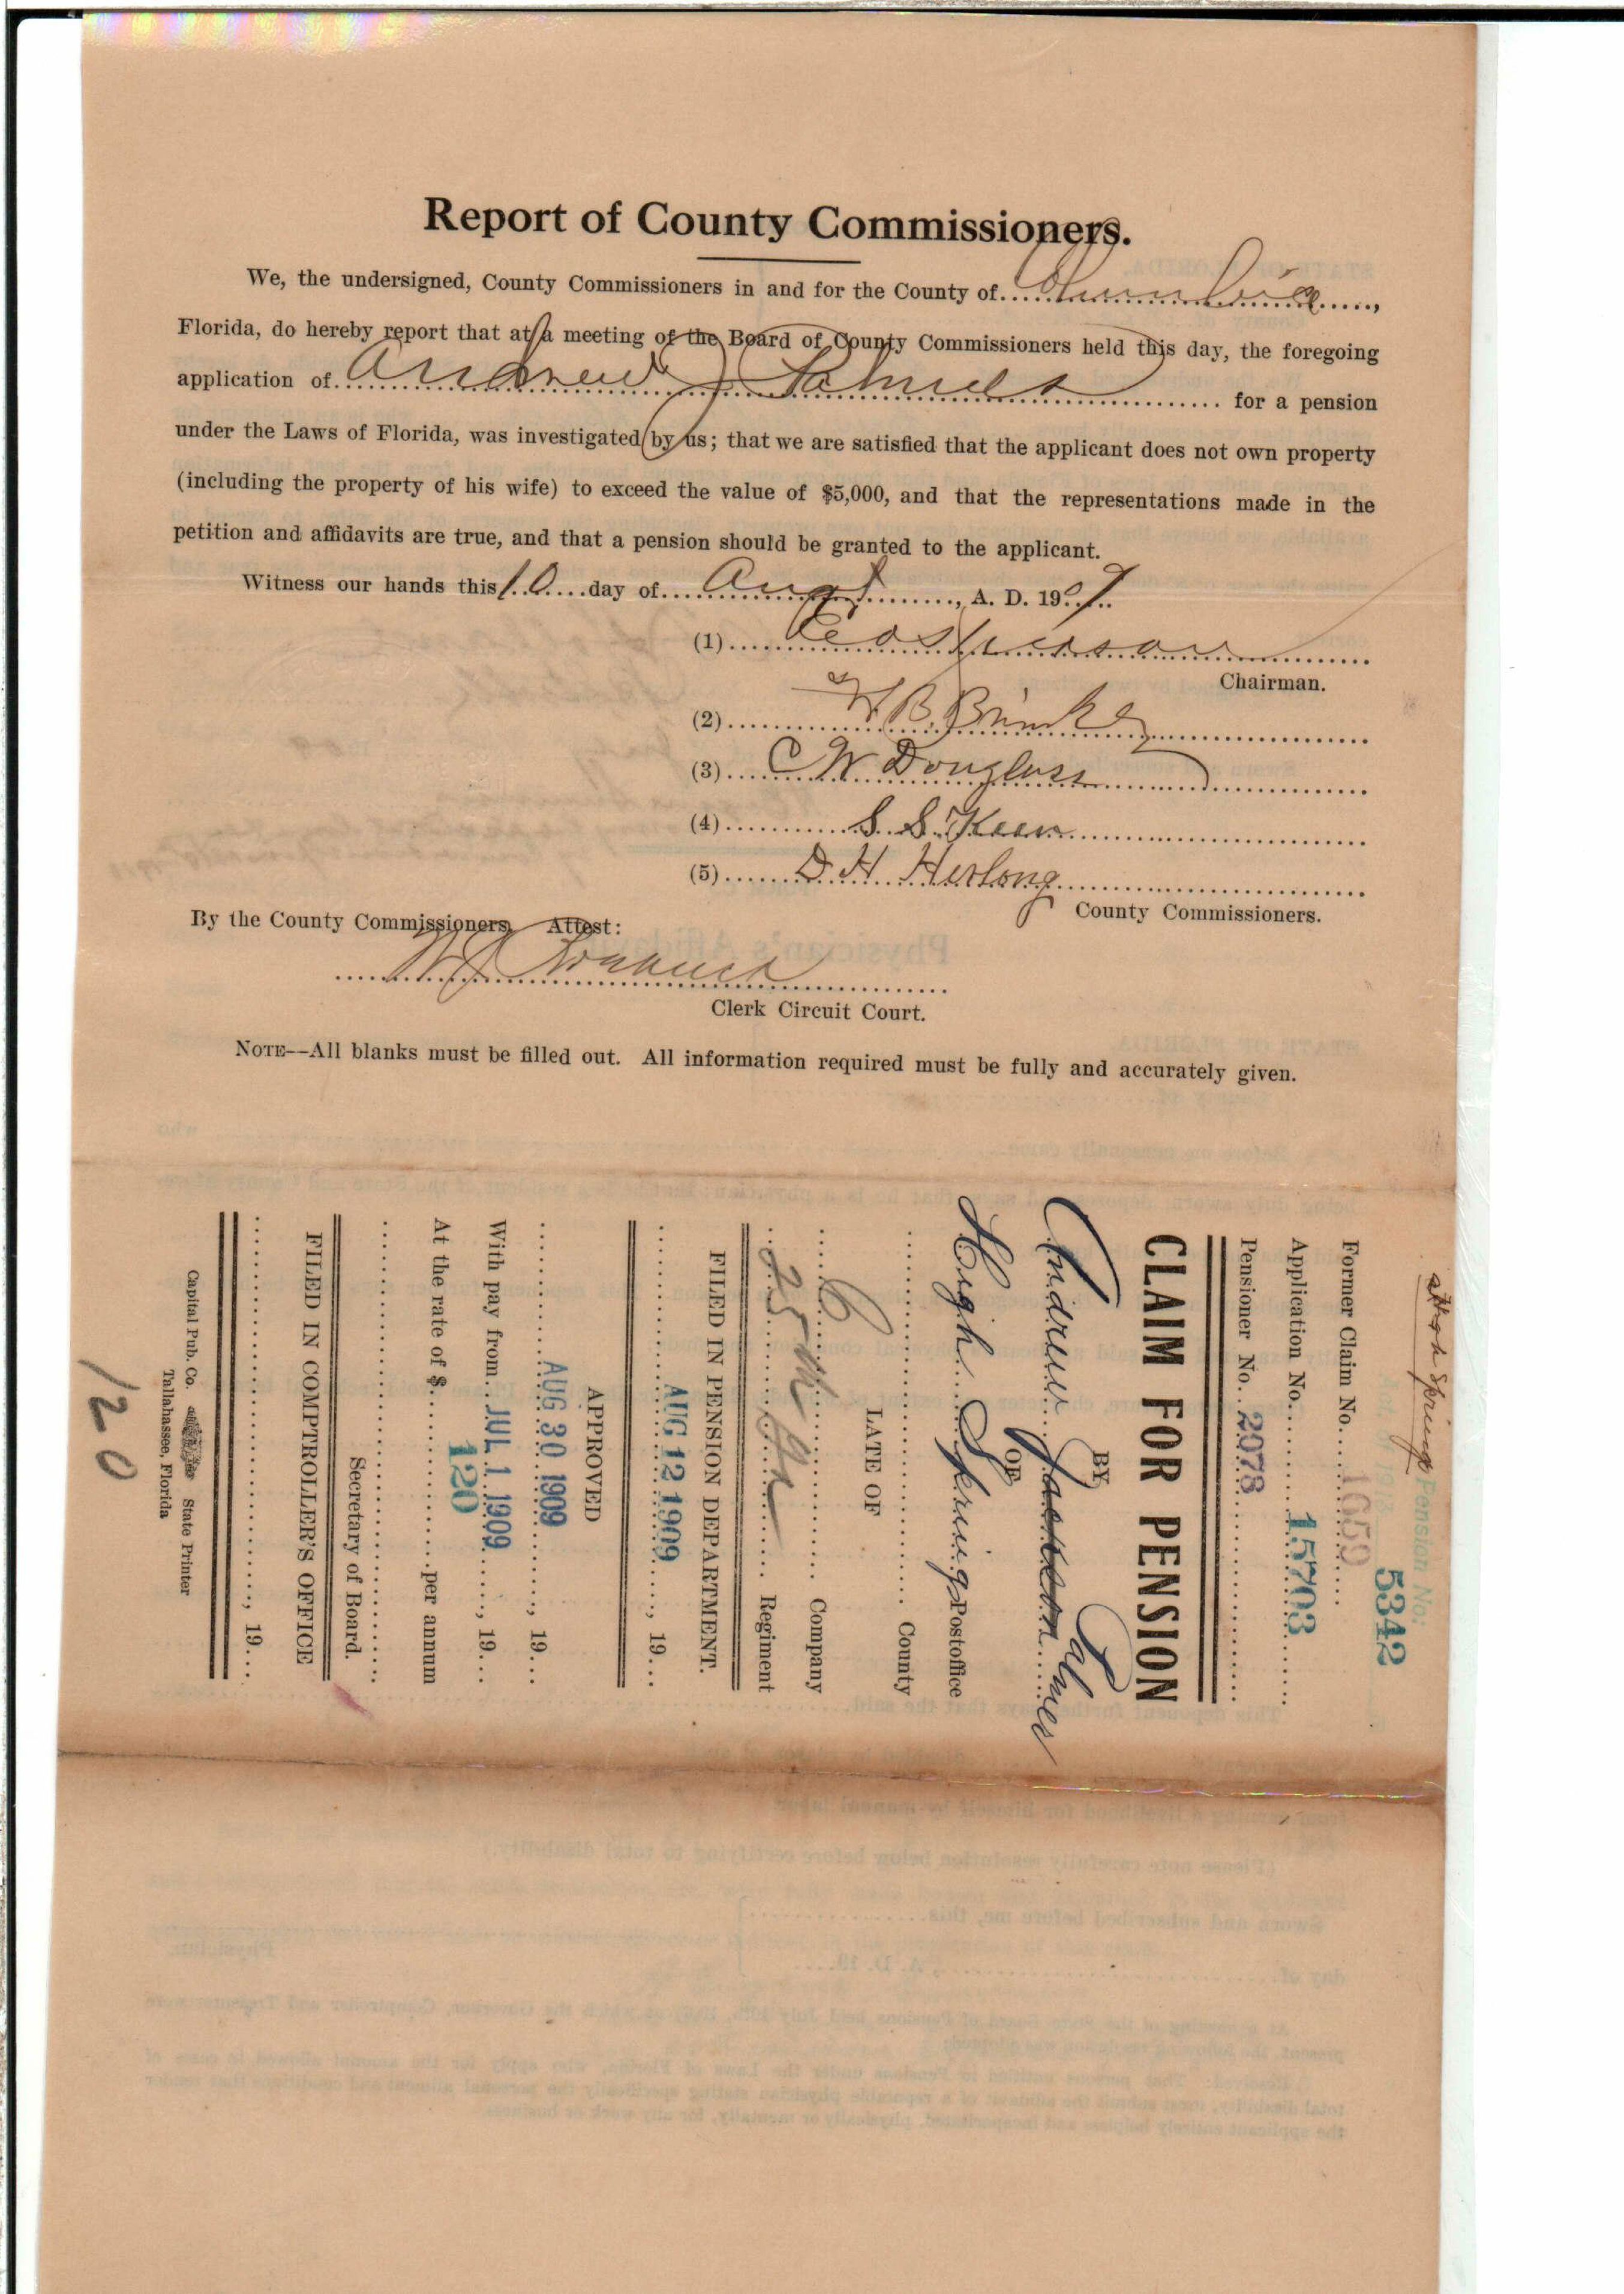 Report of County Commissioners.
We, the undersigned, County Commissioners in and for the County of Columbia,
Florida, do hereby report that at a meeting of the Board of County Commissioners held this day, the foregoing
application of Andrew J for a pension
under the Laws of Florida, was investigated by us; that we are satisfied that the applicant does not own property
(including the property of his wife) to exceed the value of $5,000, and that the representations made in the
petition and affidavits are true, and that a pension should be granted to the applicant.
Witness our hands this 10 day of Augt, A. D. 1909.
(1)
Chairman.
(2) B.
(3) C W Douglass
(4) S. S. Keen
(5) D. H. Herlong
County Commissioners.
By the County Commissioners, Attest:
Clerk Circuit Court.
NOTE--All blanks must be filled out. All information required must be fully and accurately given.
Pension No.
5342
Former Claim No. 1659
Application No. 15703
Pensioner No. 2078
CLAIM FOR PENSION
BY
Andrew Jackson
OF
High Springs Postoffice
County
LATE OF
C Company
25 Regiment
FILED IN PENSION DEPARTMENT.
AUG 12 1909, 19
APPROVED
AUG 30 1909, 19
With pay from JUL 1 1909, 19
At the rate of $ 120 per annum
Secretary of Board.
FILED IN COMPTROLLER'S OFFICE
, 19
Capital Pub. Co. State Printer
Tallahassee, Florida
120